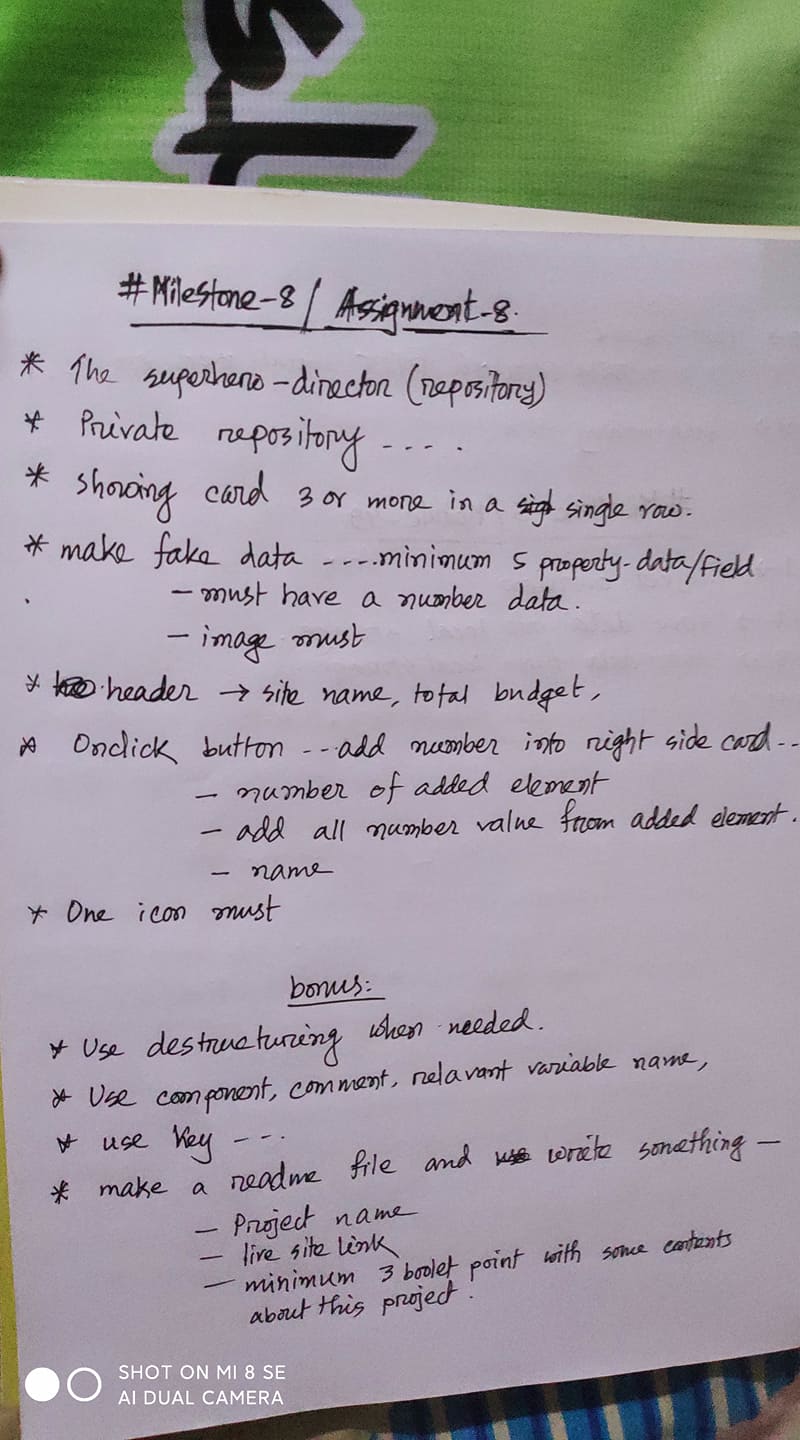 st
#Milestone-8 / Assignment-8.
* The superhero-director (repository)
* Private repository - - - .
* showing card 3 or more in a single row.
* make fake data - - - .. minimum 5 property-data/field
- must have a number data.
- image must
* header → site name, total budget,
* Onclick button - - . add number into right side card - - .
- number of added element
- add all number value from added element.
- name
* One icon must
bonus:
* Use destructuring when needed.
* Use component, comment, relavant variable name,
* use key - - .
* make a readme file and write something -
- Project name
- live site link
- minimum 3 boolet point with some contents
about this project.
SHOT ON MI 8 SE
AI DUAL CAMERA